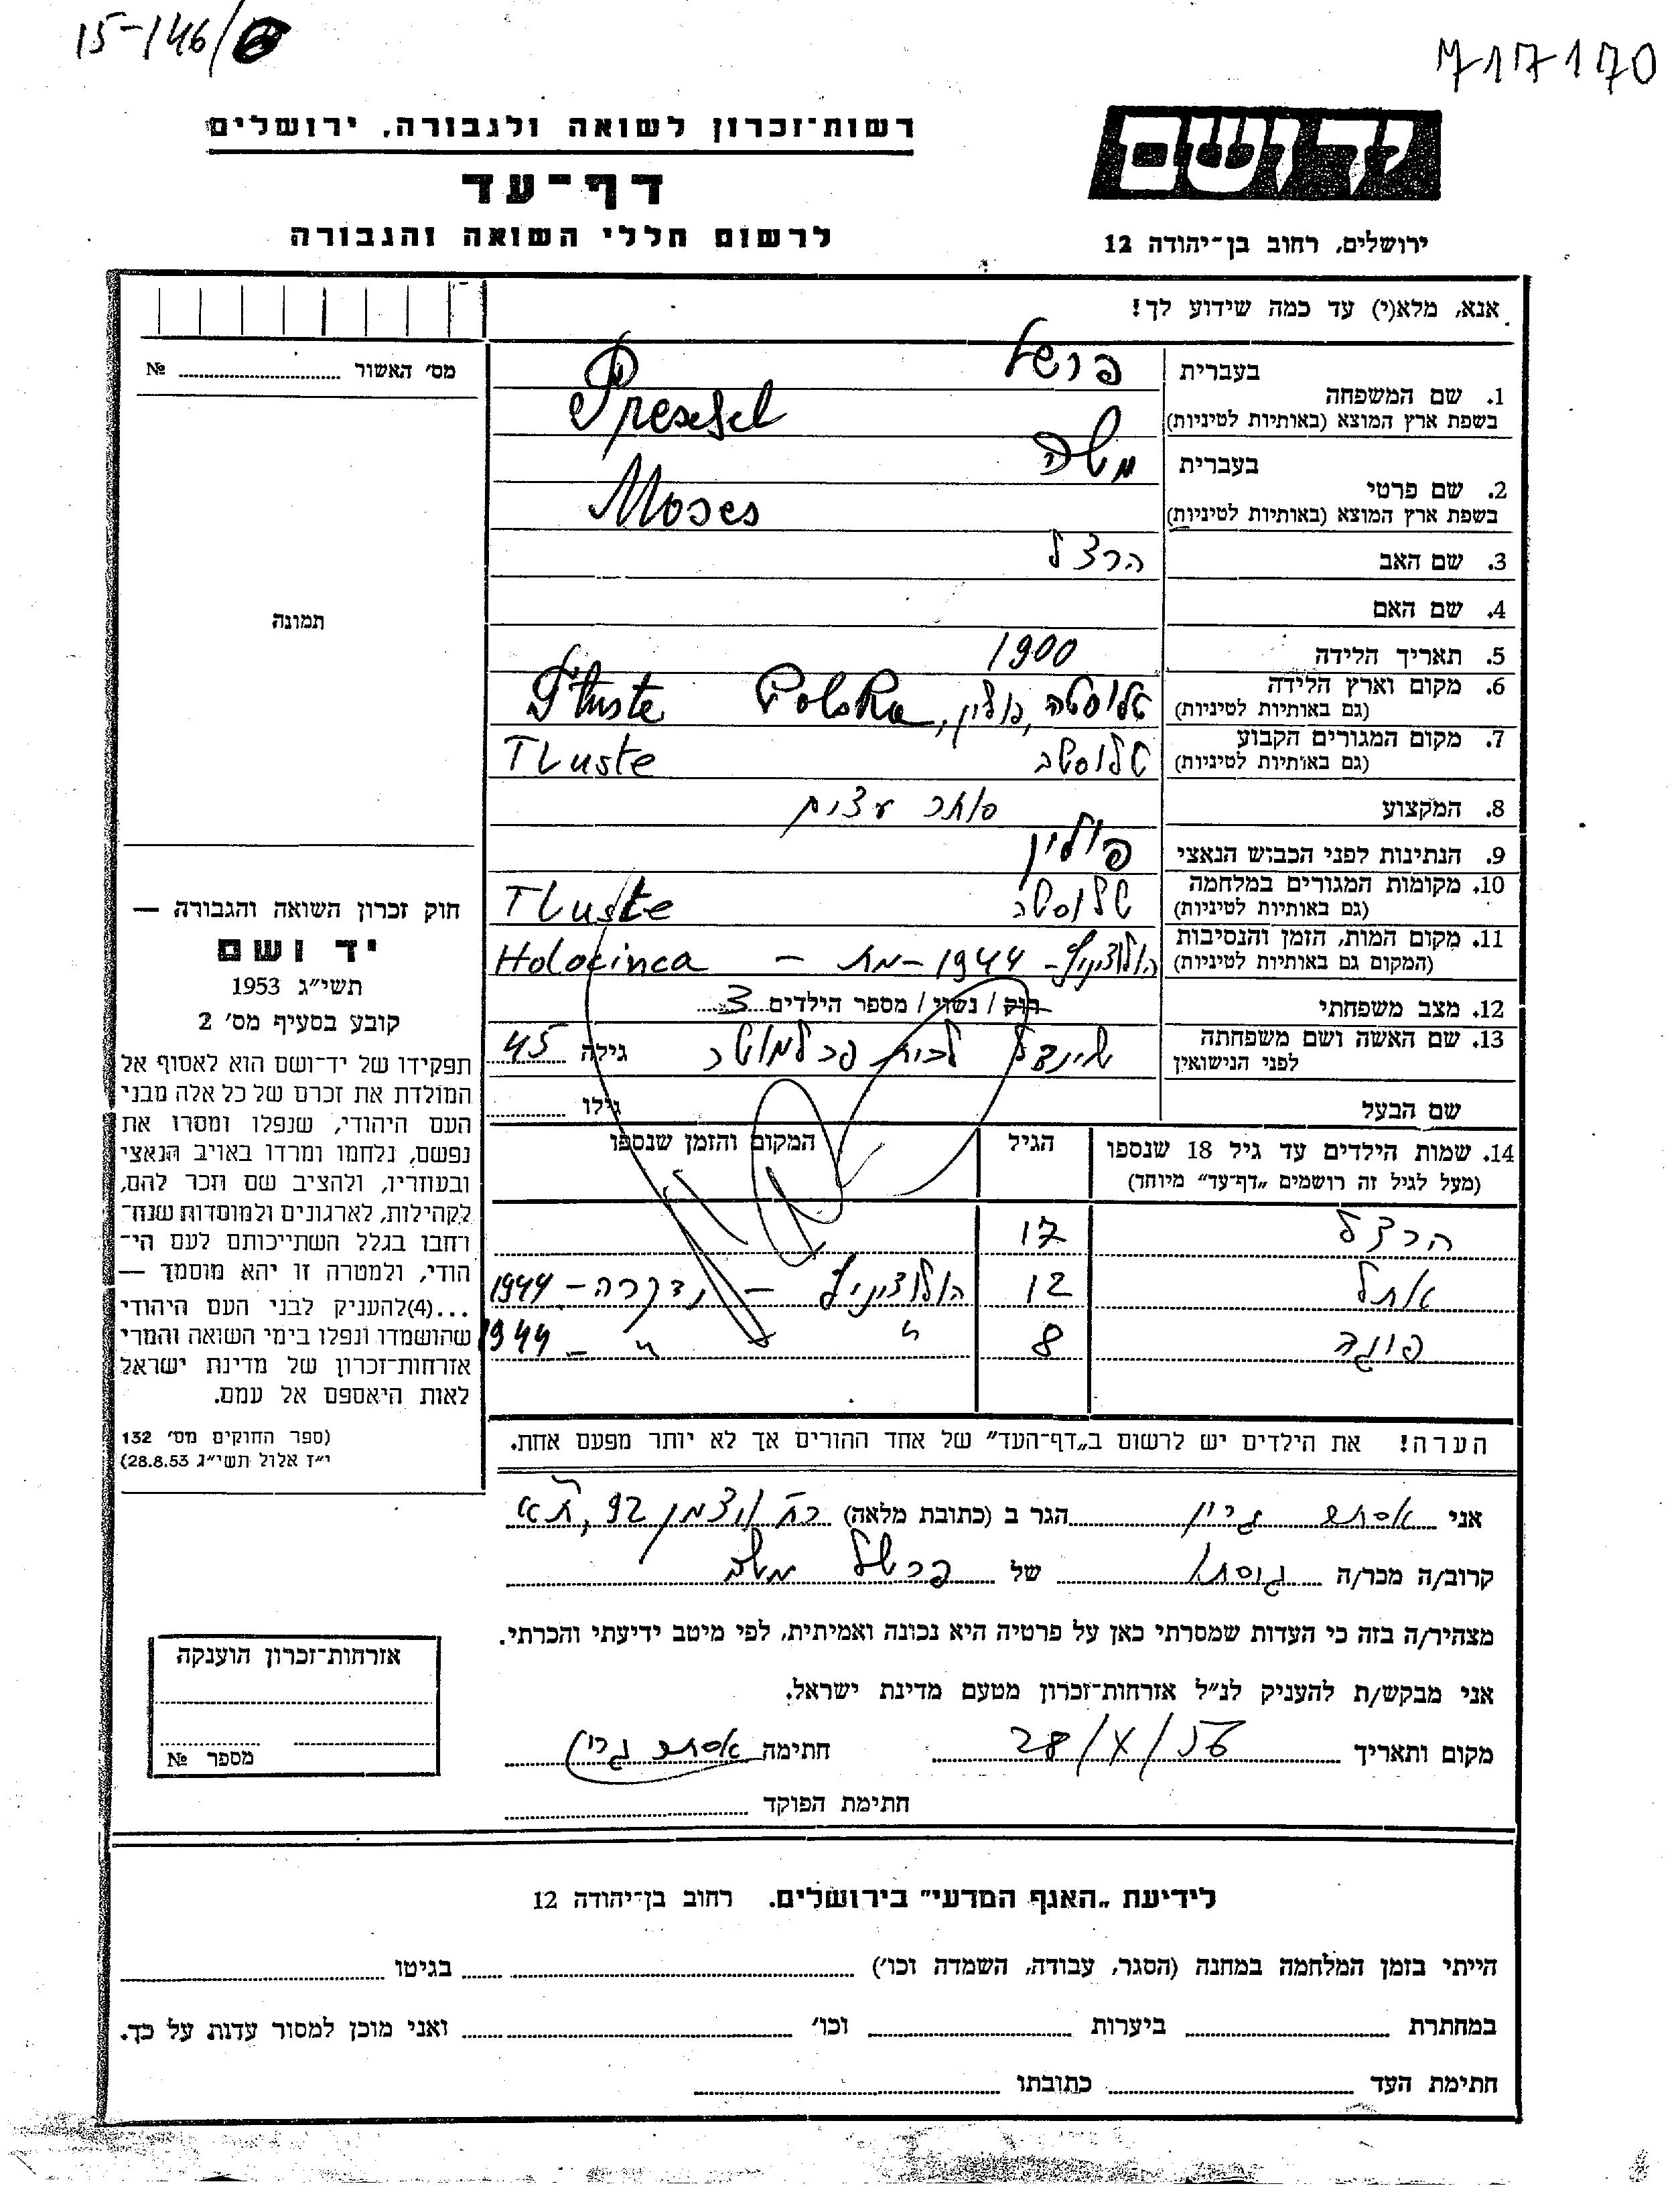 15-146/
717170
רשות־זכרון לשואה ולגבורה, ירושלים
יד ושם
דף־עד
לרשום חללי השואה והגבורה
ירושלים, רחוב בן־יהודה 12
אנא, מלא(י) עד כמה שידוע לך!
מס׳ האשור № 
1. שם המשפחה בעברית פרשל
בשפת ארץ המוצא (באותיות לטיניות) Presesel
2. שם פרטי בעברית משה
בשפת ארץ המוצא (באותיות לטיניות) Moses
3. שם האב הרצל
4. שם האם
תמונה
5. תאריך הלידה 1900
6. מקום וארץ הלידה (גם באותיות לטיניות) טלוסטה, פולין, Polska Tluste
7. מקום המגורים הקבוע (גם באותיות לטיניות) טלוסטה Tluste
8. המקצוע סוחר עצים
9. הנתינות לפני הכבוש הנאצי פולין
10. מקומות המגורים במלחמה (גם באותיות לטיניות) טלוסטה Tluste
11. מקום המות, הזמן והנסיבות (המקום גם באותיות לטיניות) 1944 - מת - Holocinca
12. מצב משפחתי רווק / נשוי / מספר הילדים 3
13. שם האשה ושם משפחתה לפני הנישואין שיינדל לבית גילה 45
שם הבעל גילו
14. שמות הילדים עד גיל 18 שנספו (מעל לגיל זה רושמים „דף־עד״ מיוחד) הגיל המקום והזמן שנספו
הרצל 17
אתל 12 נדקרה - 1944
פוגה 8 " " - 1944
הערה! את הילדים יש לרשום ב„דף־העד״ של אחד ההורים אך לא יותר מפעם אחת.
חוק זכרון השואה והגבורה —
יד ושם
תשי״ג 1953
קובע בסעיף מס׳ 2
תפקידו של יד־ושם הוא לאסוף אל
המולדת את זכרם של כל אלה מבני
העם היהודי, שנפלו ומסרו את
נפשם, נלחמו ומרדו באויב הנאצי
ובעוזריו, ולהציב שם וזכר להם,
לקהילות, לארגונים ולמוסדות שנח־
רחבו בגלל השתייכותם לעם הי־
הודי, ולמטרה זו יהא מוסמך —
...(4)להעניק לבני העם היהודי
שהושמדו ונפלו בימי השואה והמרי
אזרחות־זכרון של מדינת ישראל
לאות היאספם אל עמם.
(ספר החוקים מס׳ 132
י״ז אלול תשי״ג 28.8.53)
אני אסתר גרין הגר ב (כתובת מלאה) רח׳ ויצמן 92, ת״א
קרוב/ה מכר/ה גיסתו של פרשל משה
מצהיר/ה בזה כי העדות שמסרתי כאן על פרטיה היא נכונה ואמיתית, לפי מיטב ידיעתי והכרתי.
אני מבקש/ת להעניק לנ״ל אזרחות־זכרון מטעם מדינת ישראל.
מקום ותאריך 28/X/56 חתימה אסתר גרין
חתימת הפוקד
אזרחות־זכרון הוענקה
מספר №
לידיעת „האגף המדעי״ בירושלים. רחוב בן־יהודה 12
הייתי בזמן המלחמה במחנה (הסגר, עבודה, השמדה וכו׳) בגיטו
במחתרת ביערות וכו׳ ואני מוכן למסור עדות על כך.
חתימת העד כתובתו